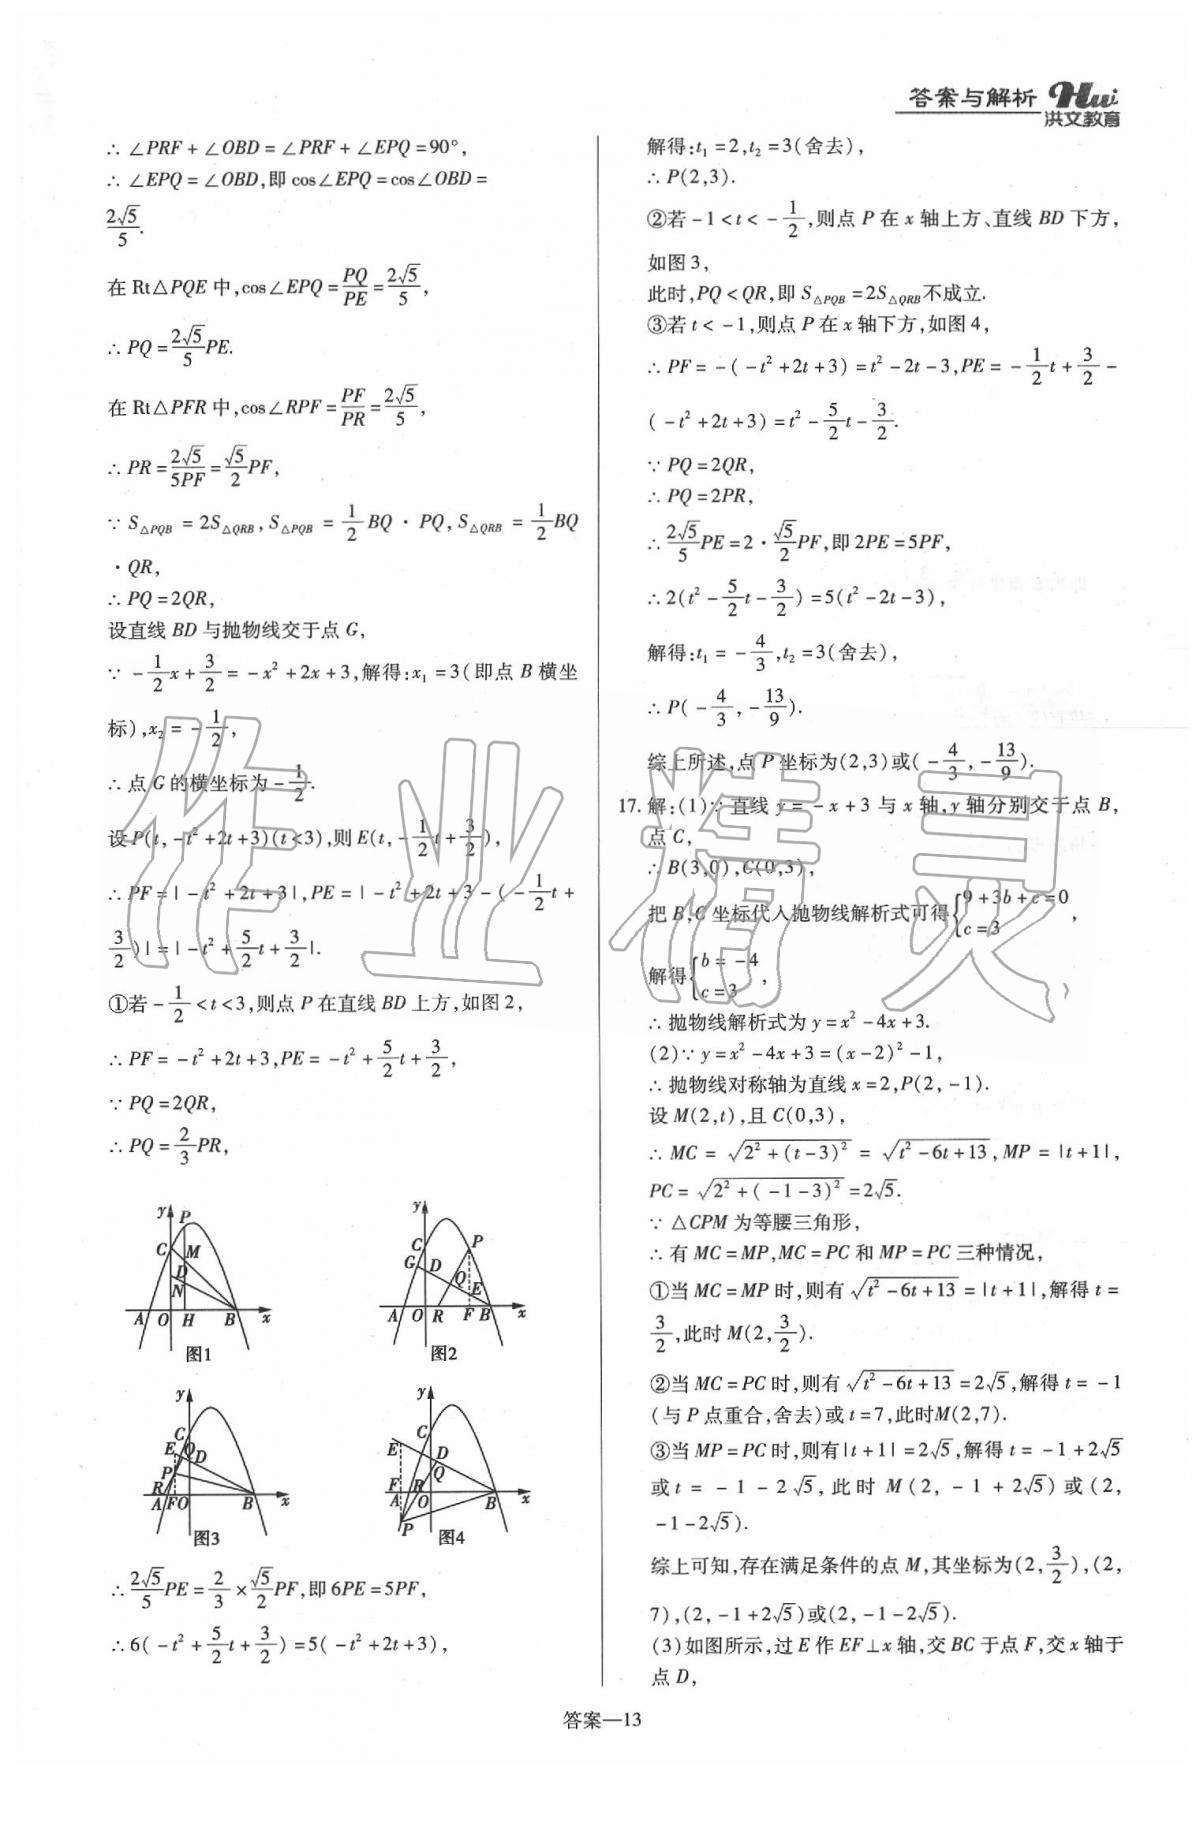 答案与解析 Hui
洪文教育
∴ ∠PRF + ∠OBD = ∠PRF + ∠EPQ = 90°,
∴ ∠EPQ = ∠OBD,即 cos∠EPQ = cos∠OBD =
2√5/5.
在 Rt△PQE 中,cos∠EPQ = PQ/PE = 2√5/5,
∴ PQ = 2√5/5 PE.
在 Rt△PFR 中,cos∠RPF = PF/PR = 2√5/5,
∴ PR = 2√5/5PF = √5/2 PF,
∵ S△PQB = 2S△QRB, S△PQB = 1/2 BQ · PQ, S△QRB = 1/2 BQ
· QR,
∴ PQ = 2QR,
设直线 BD 与抛物线交于点 G,
∵ -1/2 x + 3/2 = -x² + 2x + 3,解得:x₁ = 3(即点 B 横坐
标),x₂ = -1/2,
∴ 点 G 的横坐标为 -1/2.
设 P(t, -t² + 2t + 3)(t < 3),则 E(t, -1/2 t + 3/2),
∴ PF = | -t² + 2t + 3|, PE = | -t² + 2t + 3 - ( -1/2 t +
3/2)| = | -t² + 5/2 t + 3/2|.
①若 -1/2 < t < 3,则点 P 在直线 BD 上方,如图 2,
∴ PF = -t² + 2t + 3, PE = -t² + 5/2 t + 3/2,
∵ PQ = 2QR,
∴ PQ = 2/3 PR,
y P C M D N A O H B x
图1
y C P G D Q E A O R F B x
图2
y C E Q D P R A F O B x
图3
y C E D Q F R A O B x P
图4
∴ 2√5/5 PE = 2/3 × √5/2 PF,即 6PE = 5PF,
∴ 6( -t² + 5/2 t + 3/2) = 5( -t² + 2t + 3),
解得:t₁ = 2,t₂ = 3(舍去),
∴ P(2,3).
②若 -1 < t < -1/2,则点 P 在 x 轴上方、直线 BD 下方,
如图 3,
此时,PQ < QR,即 S△PQB = 2S△QRB不成立.
③若 t < -1,则点 P 在 x 轴下方,如图 4,
∴ PF = -( -t² + 2t + 3) = t² - 2t - 3, PE = -1/2 t + 3/2 -
( -t² + 2t + 3) = t² - 5/2 t - 3/2.
∵ PQ = 2QR,
∴ PQ = 2PR,
∴ 2√5/5 PE = 2 · √5/2 PF,即 2PE = 5PF,
∴ 2(t² - 5/2 t - 3/2) = 5(t² - 2t - 3),
解得:t₁ = -4/3, t₂ = 3(舍去),
∴ P( -4/3, -13/9).
综上所述,点 P 坐标为(2,3)或( -4/3, -13/9).
17. 解:(1)∵ 直线 y = -x + 3 与 x 轴,y 轴分别交于点 B,
点 C,
∴ B(3,0),C(0,3),
把 B,C 坐标代入抛物线解析式可得{9 + 3b + c = 0
c = 3,
解得{b = -4
c = 3,
∴ 抛物线解析式为 y = x² - 4x + 3.
(2)∵ y = x² - 4x + 3 = (x - 2)² - 1,
∴ 抛物线对称轴为直线 x = 2,P(2, -1).
设 M(2,t),且 C(0,3),
∴ MC = √(2² + (t - 3)²) = √(t² - 6t + 13), MP = |t + 1|,
PC = √(2² + ( -1 - 3)²) = 2√5.
∵ △CPM 为等腰三角形,
∴ 有 MC = MP,MC = PC 和 MP = PC 三种情况,
①当 MC = MP 时,则有 √(t² - 6t + 13) = |t + 1|,解得 t =
3/2,此时 M(2, 3/2).
②当 MC = PC 时,则有 √(t² - 6t + 13) = 2√5,解得 t = -1
(与 P 点重合,舍去)或 t = 7,此时M(2,7).
③当 MP = PC 时,则有|t + 1| = 2√5,解得 t = -1 + 2√5
或 t = -1 - 2√5, 此时 M(2, -1 + 2√5) 或 (2,
-1 - 2√5).
综上可知,存在满足条件的点 M,其坐标为(2, 3/2),(2,
7),(2, -1 + 2√5)或(2, -1 - 2√5).
(3)如图所示,过 E 作 EF⊥x 轴,交 BC 于点 F,交 x 轴于
点 D,
作业精灵
答案—13